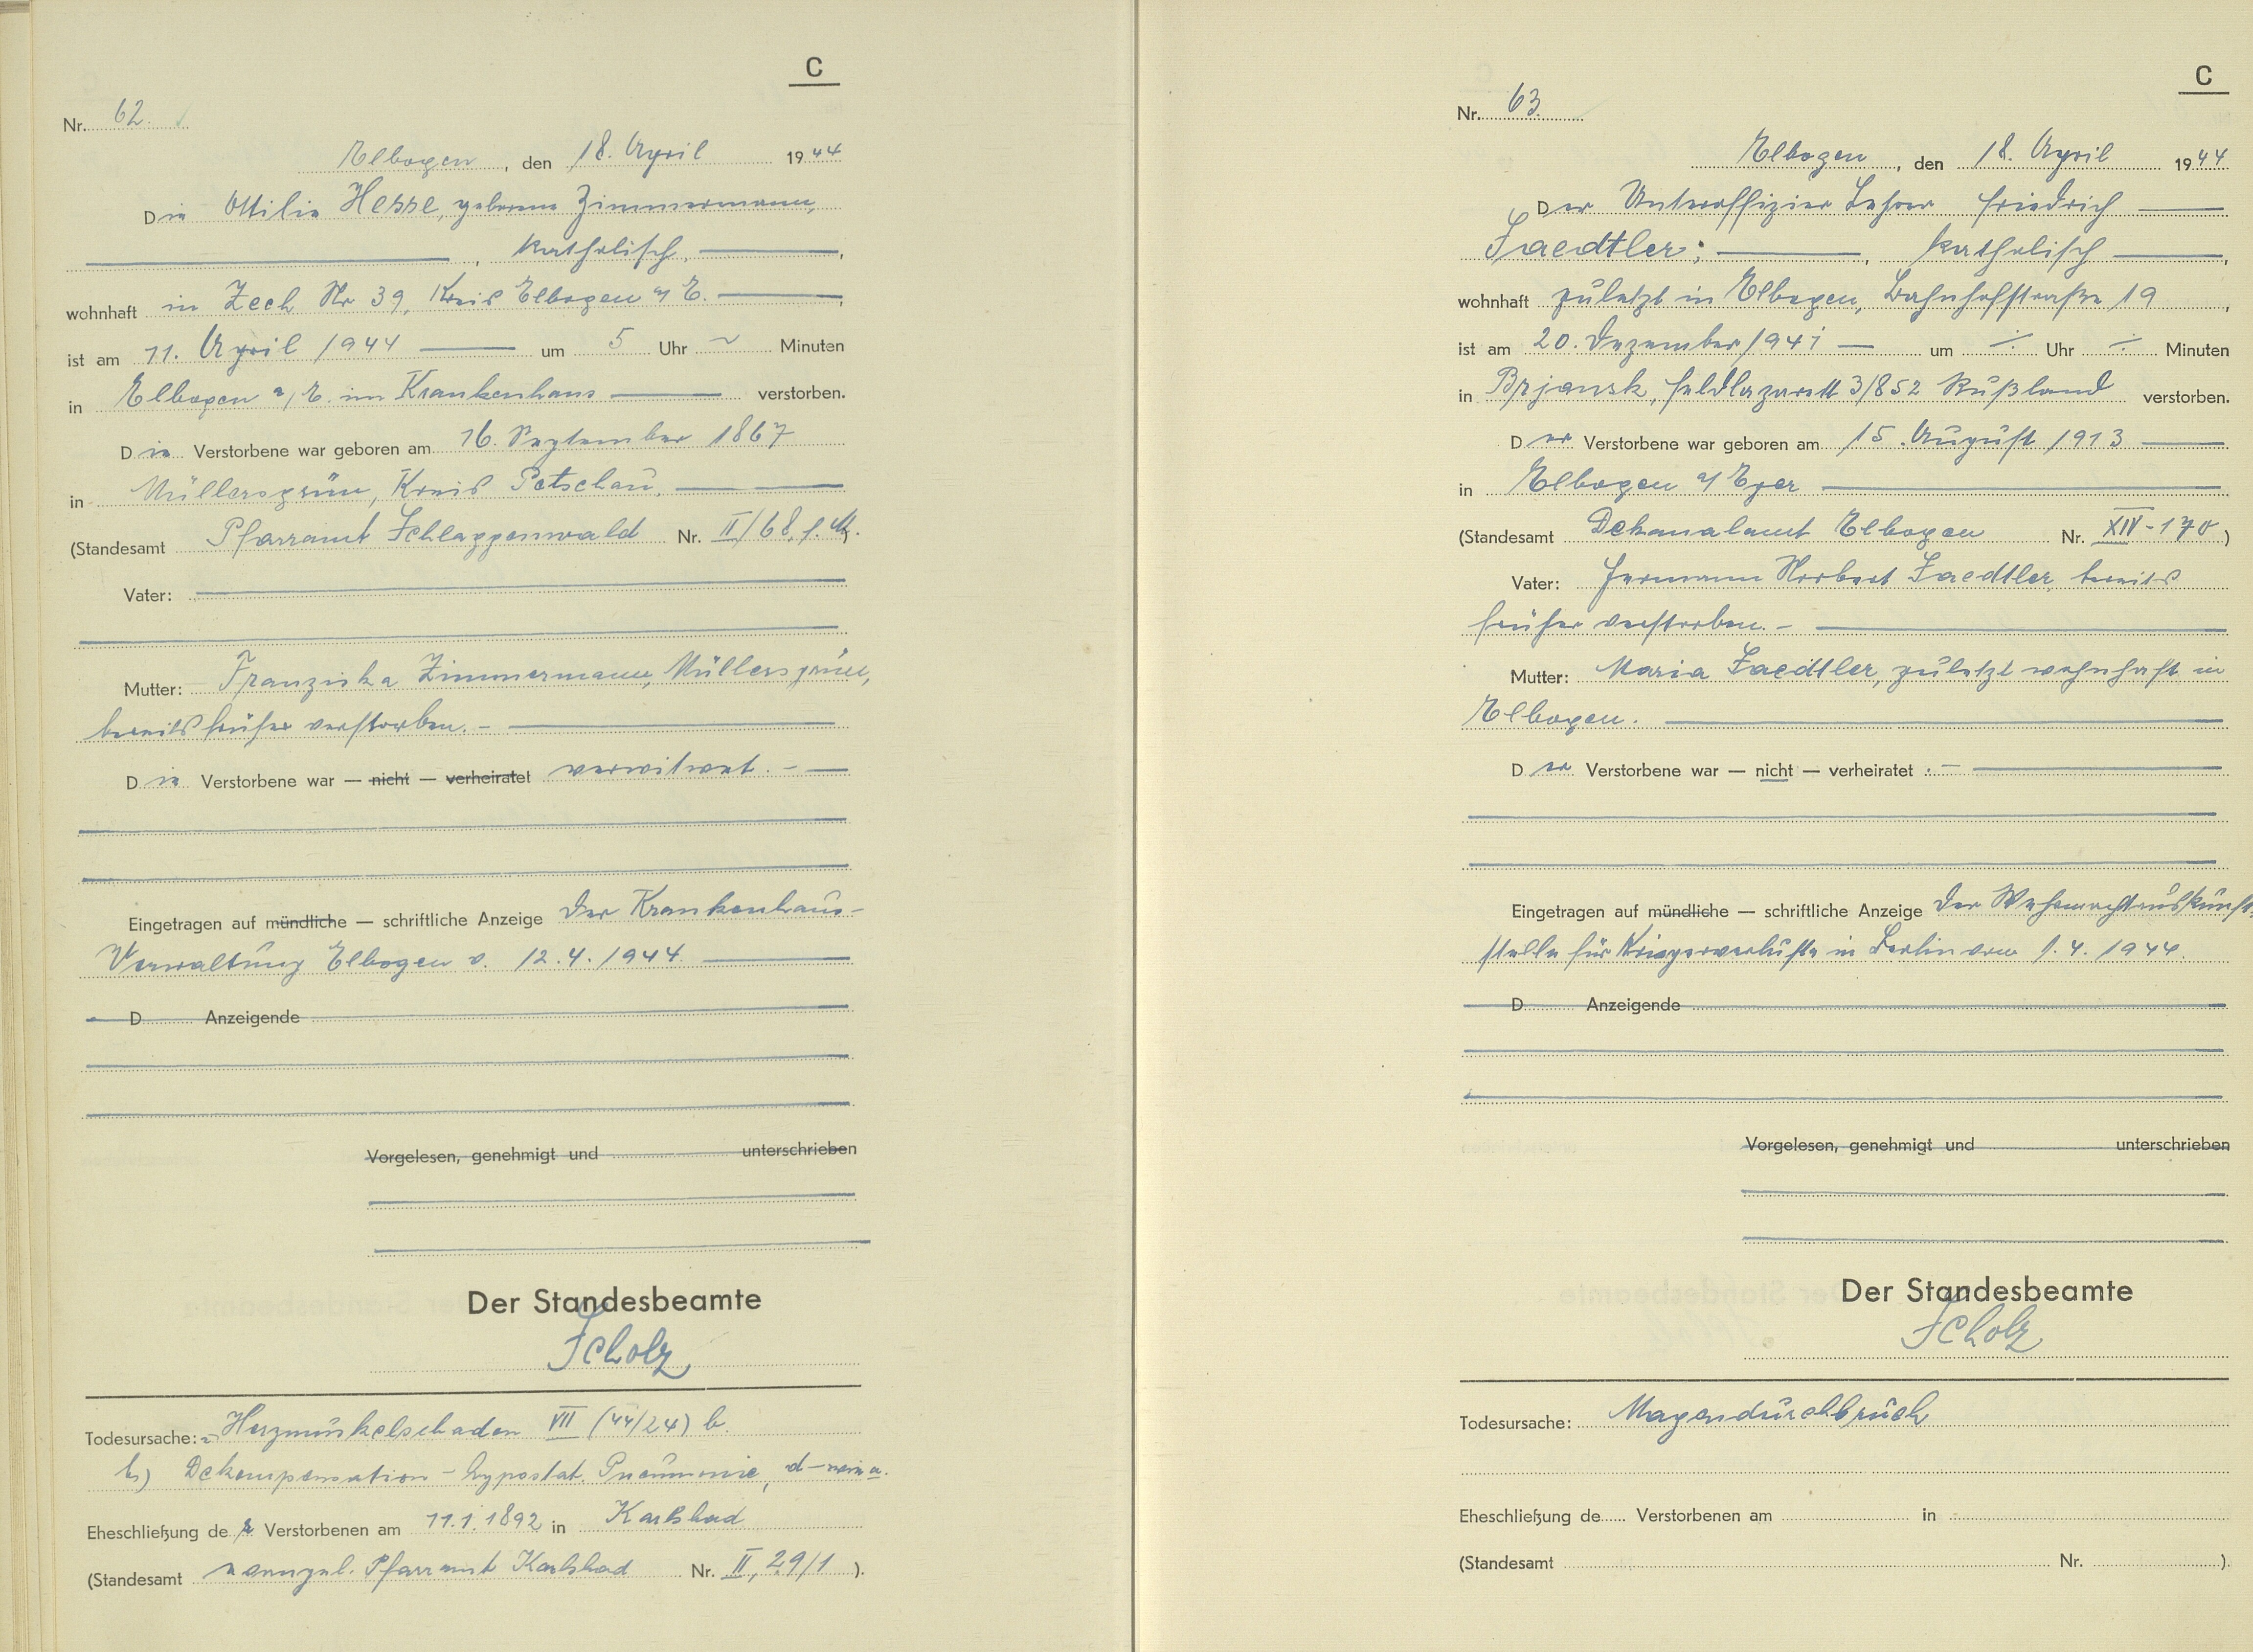 C
Nr. 62.
Elbogen, den 18. April 1944
Die Ottilie Hesse, geborene Zimmermann,
, katholisch,
wohnhaft in Zech Nr 39, Kreis Elbogen a/ E.
ist am 11. April 1944 um 5 Uhr ~ Minuten
in Elbogen a/ E. im Krankenhaus verstorben.
Die Verstorbene war geboren am 16. September 1867
in Müllersgrün, Kreis Petschau,
(Standesamt Pfarramt Schlaggenwald Nr. II/68, f. M.)
Vater:
Mutter: Franziska Zimmermann, Müllersgrün,
bereits früher verstorben. -
Die Verstorbene war — nicht — verheiratet verwitwet. -
Eingetragen auf mündliche — schriftliche Anzeige der Krankenhaus-
Verwaltung Elbogen v. 12.4.1944
D Anzeigende
Vorgelesen, genehmigt und unterschrieben
Der Standesbeamte
Scholz
Todesursache: Herzmuskelschaden VII (44/24) b.
b) Dekompensation - hypostat. Pneumonie, d-
Eheschließung der Verstorbenen am 11.1.1892 in Karlsbad
(Standesamt evangel. Pfarramt Karlsbad Nr. II, 29/1 ).
C
Nr. 63.
Elbogen, den 18. April 1944
Der Unteroffizier Lehrer Friedrich
Saedtler; , katholisch ,
wohnhaft zuletzt in Elbogen, Bahnhofstraße 19 ,
ist am 20. Dezember 1941 um ÷ Uhr ÷ Minuten
in Brjansk, Feldlazarett 3/852 Rußland verstorben.
Der Verstorbene war geboren am 15. August 1913
in Elbogen a/ Eger
(Standesamt Dekanalamt Elbogen Nr. XIV-170 )
Vater: Hermann Norbert Saedtler, bereits
früher verstorben. -
Mutter: Maria Saedtler, zuletzt wohnhaft in
Elbogen.
Der Verstorbene war — nicht — verheiratet . -
Eingetragen auf mündliche — schriftliche Anzeige der Wehrmachtauskunft-
stelle für Kriegerverluste in Berlin vom 1.4.1944.
D Anzeigende
Vorgelesen, genehmigt und unterschrieben
Der Standesbeamte
Scholz
Todesursache: Magendurchbruch
Eheschließung de Verstorbenen am in
(Standesamt Nr. ).